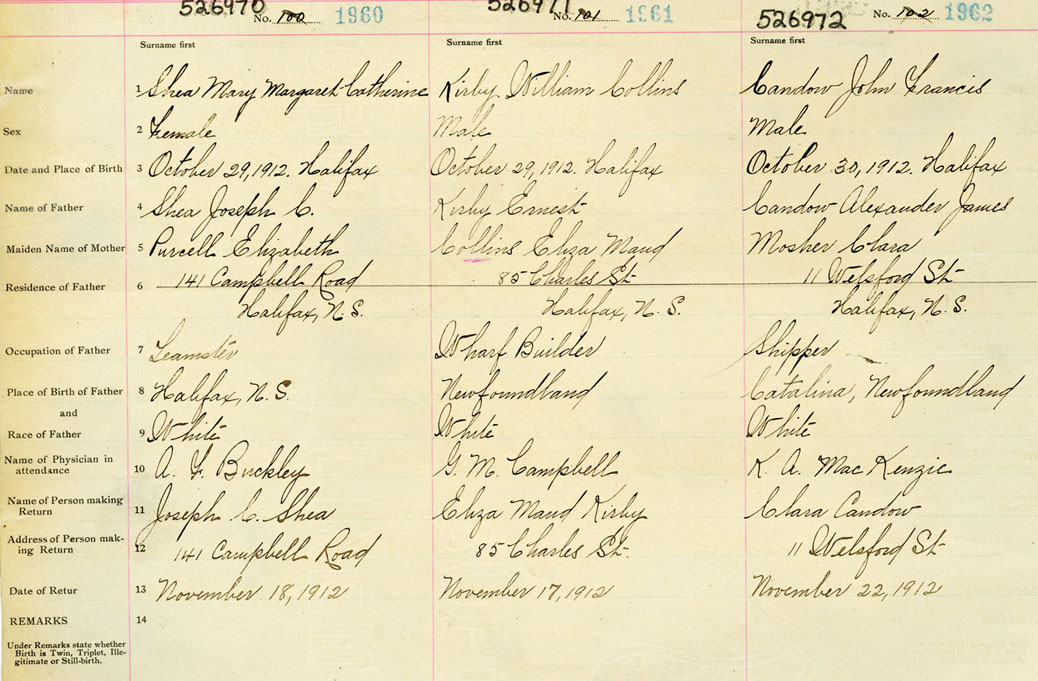 526970 No. 100 1960 526971 No. 101 1961 526972 No. 102 1962
Surname first Surname first Surname first
Name 1 Shea Mary Margaret Catherine Kirby William Collins Candow John Francis
Sex 2 Female Male Male
Date and Place of Birth 3 October 29, 1912. Halifax October 29, 1912. Halifax October 30, 1912. Halifax
Name of Father 4 Shea Joseph C. Kirby Ernest Candow Alexander James
Maiden Name of Mother 5 Purcell Elizabeth Collins Eliza Maud Mosher Clara
Residence of Father 6 141 Campbell Road 85 Charles St 11 Welsford St
Halifax, N.S. Halifax, N.S. Halifax, N.S.
Occupation of Father 7 Teamster Wharf Builder Shipper
Place of Birth of Father 8 Halifax, N.S. Newfoundland Catalina, Newfoundland
and
Race of Father 9 White White White
Name of Physician in
attendance 10 A. F. Buckley G. M. Campbell K. A. MacKenzie
Name of Person making
Return 11 Joseph C. Shea Eliza Maud Kirby Clara Candow
Address of Person mak-
ing Return 12 141 Campbell Road 85 Charles St. 11 Welsford St
Date of Retur 13 November 18, 1912 November 17, 1912 November 22, 1912
REMARKS 14
Under Remarks state whether
Birth is Twin, Triplet, Ille-
gitimate or Still-birth.